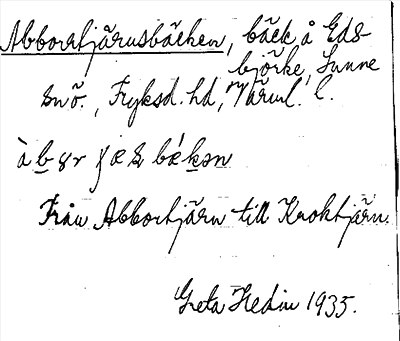 Abborrtjärnsbäcken, bäck å Eds-
björke, Sunne
sn ö., Fryksd. hd, Värml. l.
Från Abbortjärn till Kroktjärn.
Greta Hedin 1935.